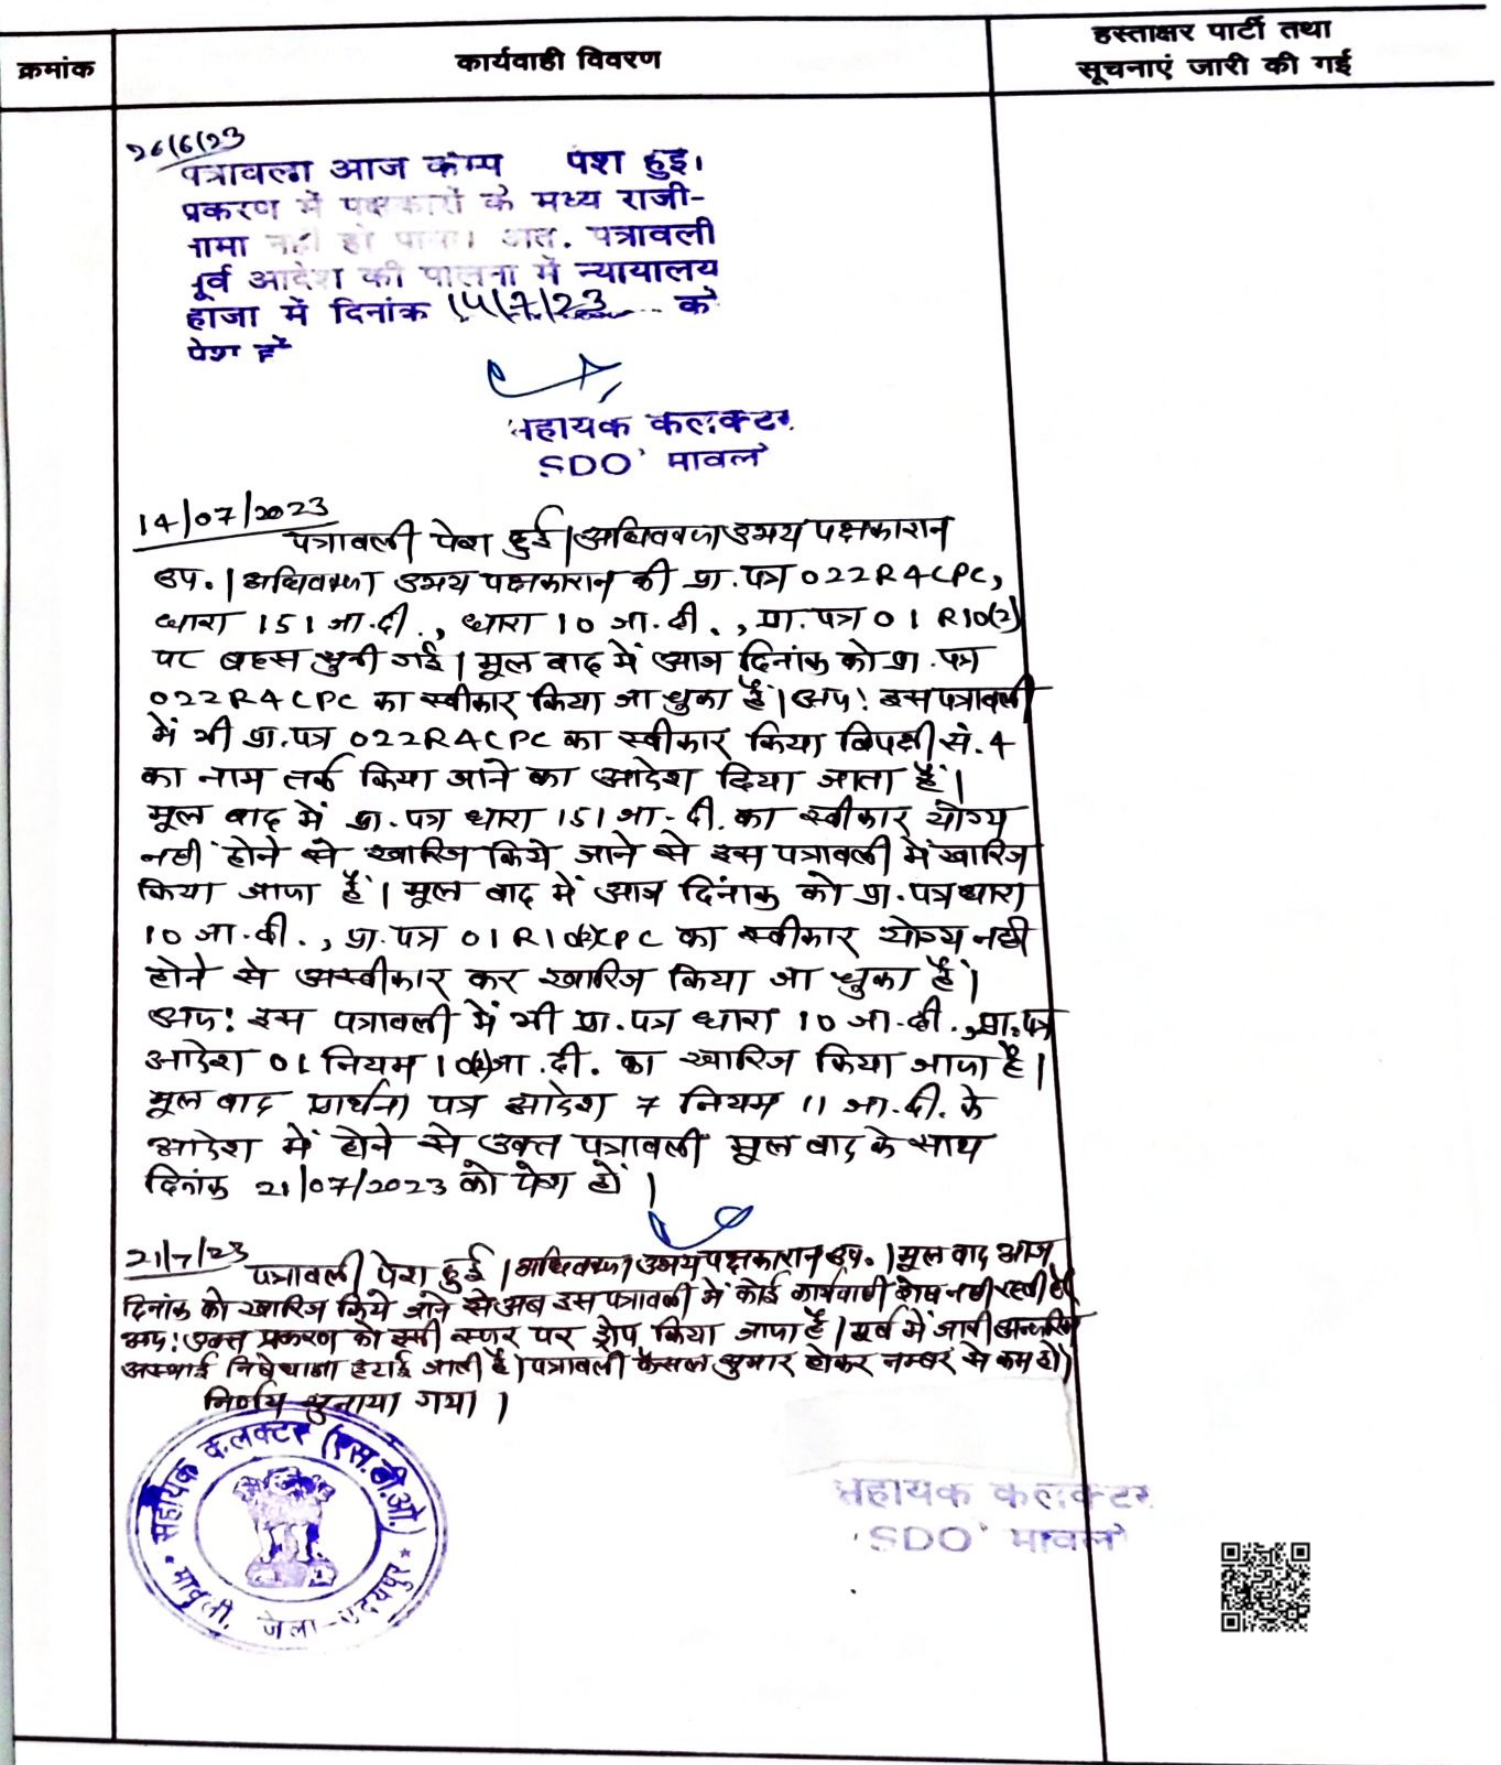 क्रमांक
कार्यवाही विवरण
हस्ताक्षर पार्टी तथा
सूचनाएं जारी की गई
26/6/23
पत्रावली आज कैम्प पेश हुई।
प्रकरण में पक्षकारों के मध्य राजी-
नामा नहीं हो पाया। अतः पत्रावली
पूर्व आदेश की पालना में न्यायालय
हाजा में दिनांक 14/7/23 को
पेश हो
सहायक कलक्टर
SDO मावली
14/07/2023
पत्रावली पेश हुई। अधिवक्ता उभय पक्षकारान
उप.। अधिवक्ता उभय पक्षकारान की प्रा.पत्र 022R4CPC,
धारा 151 जा.दी., धारा 10 जा.दी., प्रा.पत्र 01 R10(2)
पर बहस सुनी गई। मूल वाद में आज दिनांक को प्रा.पत्र
022R4CPC का स्वीकार किया जा चुका है। अतः इस पत्रावली
में भी प्रा.पत्र 022R4CPC का स्वीकार किया विपक्षी सं.4
का नाम तर्क किया जाने का आदेश दिया जाता है।
मूल वाद में प्रा.पत्र धारा 151 जा-दी. का स्वीकार योग्य
नहीं होने से खारिज किये जाने से इस पत्रावली में खारिज
किया जाता है। मूल वाद में आज दिनांक को प्रा.पत्र धारा
10 जा.दी., प्रा.पत्र 01R10(2)CPC का स्वीकार योग्य नहीं
होने से अस्वीकार कर खारिज किया जा चुका है।
अतः इस पत्रावली में भी प्रा.पत्र धारा 10 जा.दी., प्रा.पत्र
आदेश 01 नियम 10(2)जा.दी. का खारिज किया जाता है।
मूल वाद प्रार्थना पत्र आदेश 7 नियम 11 जा.दी. के
आदेश में होने से उक्त पत्रावली मूल वाद के साथ
दिनांक 21/07/2023 को पेश हो।
21/7/23
पत्रावली पेश हुई। अधिवक्ता उभय पक्षकारान उप.। मूल वाद आज
दिनांक को खारिज किये जाने से अब इस पत्रावली में कोई कार्यवाही शेष नहीं रहती है
अतः उक्त प्रकरण को इसी स्तर पर ड्रोप किया जाता है। पूर्व में जारी अन्तरिम
अस्थाई निषेधाज्ञा हटाई जाती है। पत्रावली फैसल शुमार होकर नम्बर से कम हो।
निर्णय सुनाया गया।
सहायक कलक्टर (एस.डी.ओ.)
मावली, जिला-उदयपुर
सहायक कलक्टर
SDO मावली